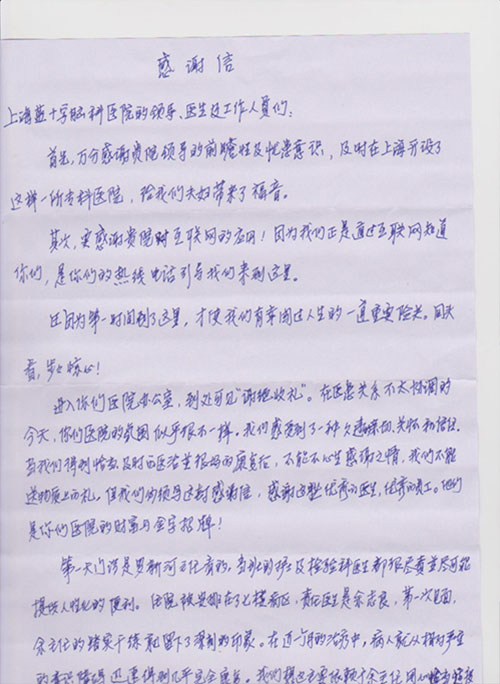 感谢信
上海蓝十字脑科医院的领导、医生及工作人员们:
首先,万分感谢贵院领导的前瞻性及忧患意识,及时在上海开设了
这样一所专科医院,给我们夫妇带来了福音。
其次,要感谢贵院对互联网的应用!因为我们正是通过互联网知道
你们,是你们的热线电话引导我们来到这里。
正因为第一时间到了这里,才使我们有幸闯过人生的一道重要险关。回头
看,步步惊心!
进入你们医院办公室,到处可见“谢绝收礼”。在医患关系不太协调的
今天,你们医院的氛围似乎很不一样。我们感受到了一种久违的关怀和信任。
当我们得到恰当及时的医治并很好的康复后,不能不心生感激之情,我们不能
送物质上的礼,但我们必须写这封感谢信,感谢这些优秀的医生,优秀的员工。他们
是你们医院的财富与金字招牌!
第一天门诊是男新河主任看的,当班的护士及检验科医生都很尽责并尽可能
提供人性化的便利。住院被安排在了七楼病区,责任医生是余志良,第一次见面,
余主任的踏实干练就留下了深刻的印象。在近一个月的治疗中,病人就从相对严重
的意识障碍迅速得到几乎完全康复。我们想这主要依赖于余主任